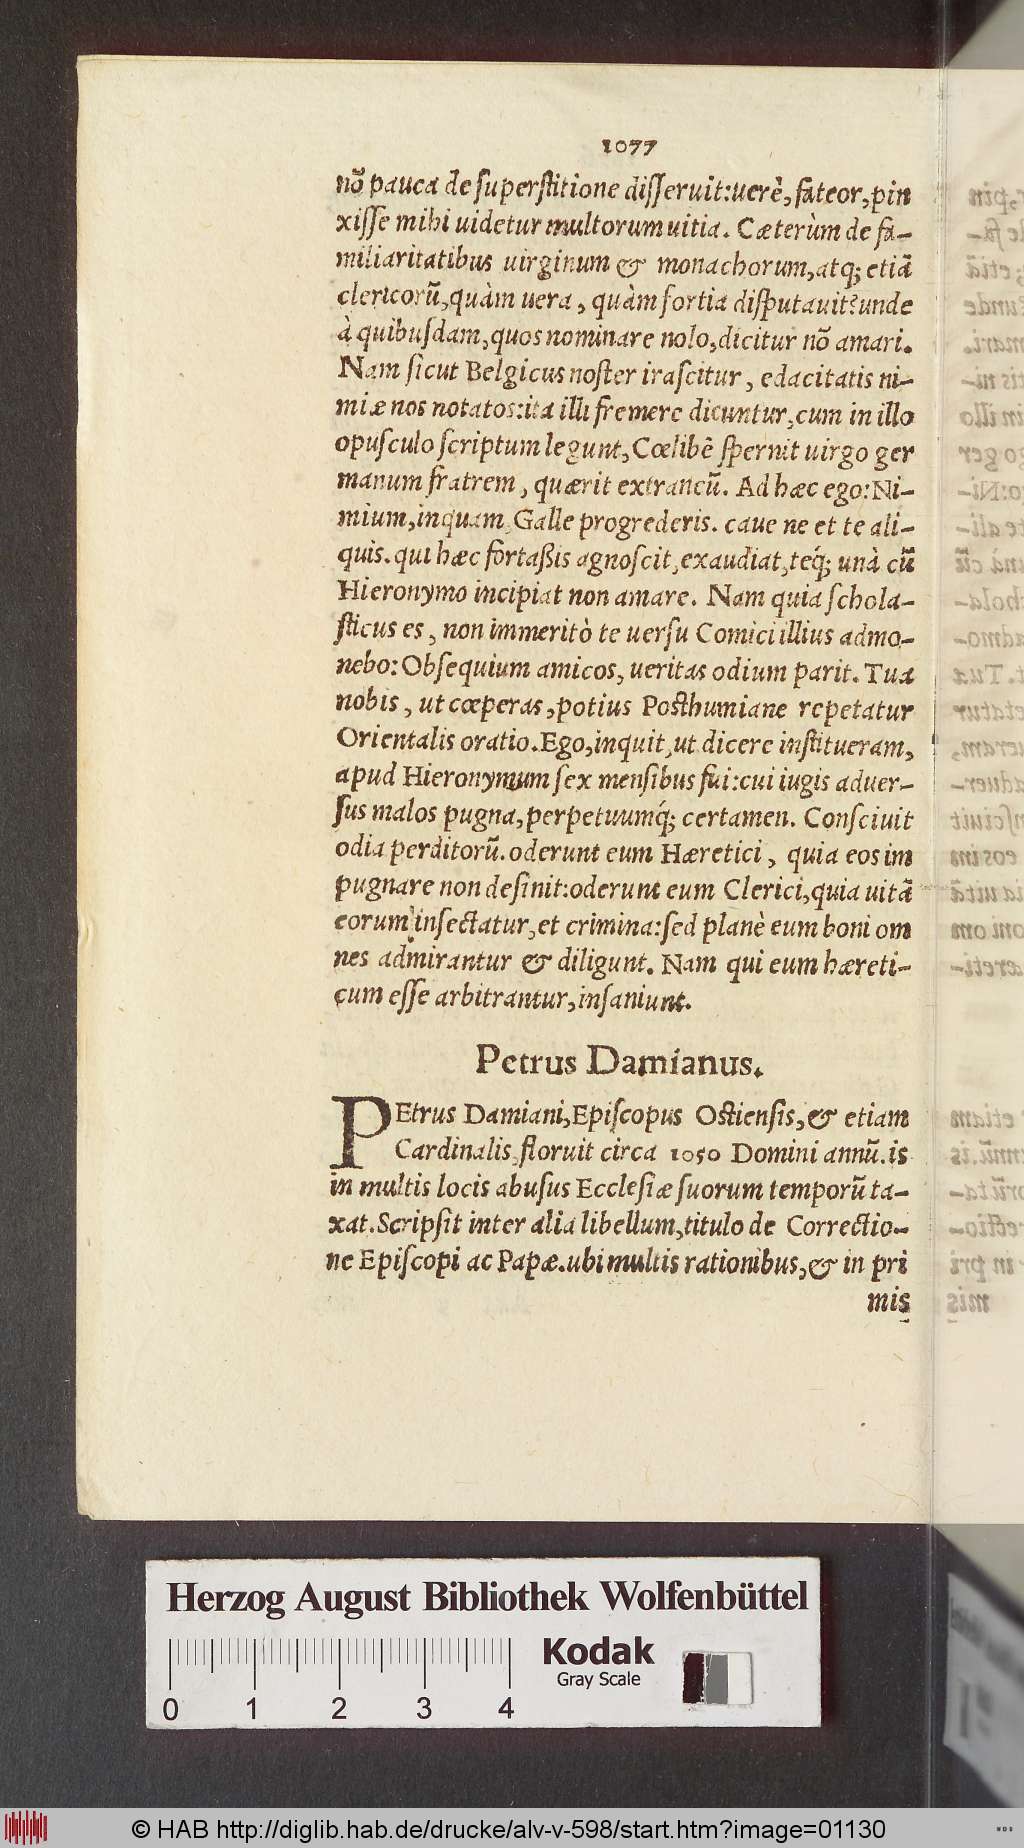 1077
nõ pauca de ſuperſtitione diſſeruit: uerè, fateor, pin
xiſſe mihi uidetur multorum uitia. Cæterùm de fa-
miliaritatibus uirginum & monachorum, atq; etiã
clericorũ, quàm uera, quàm fortia diſputauit? unde
à quibuſdam, quos nominare nolo, dicitur nõ amari.
Nam ſicut Belgicus noſter iraſcitur, edacitatis ni-
miæ nos notatos: ita illi fremere dicuntur, cum in illo
opuſculo ſcriptum legunt, Cœlibẽ ſpernit uirgo ger
manum fratrem, quærit extraneũ. Ad hæc ego: Ni-
mium, inquam, Galle progrederis. caue ne et te ali-
quis. qui hæc fortaßis agnoſcit, exaudiat, teq́; unà cũ
Hieronymo incipiat non amare. Nam quia ſchola-
ſticus es, non immeritò te uerſu Comici illius admo-
nebo: Obſequium amicos, ueritas odium parit. Tua
nobis, ut cœperas, potius Poſthumiane repetatur
Orientalis oratio. Ego, inquit, ut dicere inſtitueram,
apud Hieronymum ſex menſibus fui: cui iugis aduer-
ſus malos pugna, perpetuumq́; certamen. Conſciuit
odia perditorũ. oderunt eum Hæretici, quia eos im
pugnare non deſinit: oderunt eum Clerici, quia uitã
eorum inſectatur, et crimina: ſed planè eum boni om
nes admirantur & diligunt. Nam qui eum hæreti-
cum eſſe arbitrantur, inſaniunt.
Petrus Damianus.
PEtrus Damiani, Epiſcopus Oſtienſis, & etiam
Cardinalis, floruit circa 1050 Domini annũ. is
in multis locis abuſus Eccleſiæ ſuorum temporũ ta-
xat. Scripſit inter alia libellum, titulo de Correctio-
ne Epiſcopi ac Papæ. ubi multis rationibus, & in pri
mis
Herzog August Bibliothek Wolfenbüttel
Kodak
Gray Scale
0 1 2 3 4
© HAB http://diglib.hab.de/drucke/alv-v-598/start.htm?image=01130